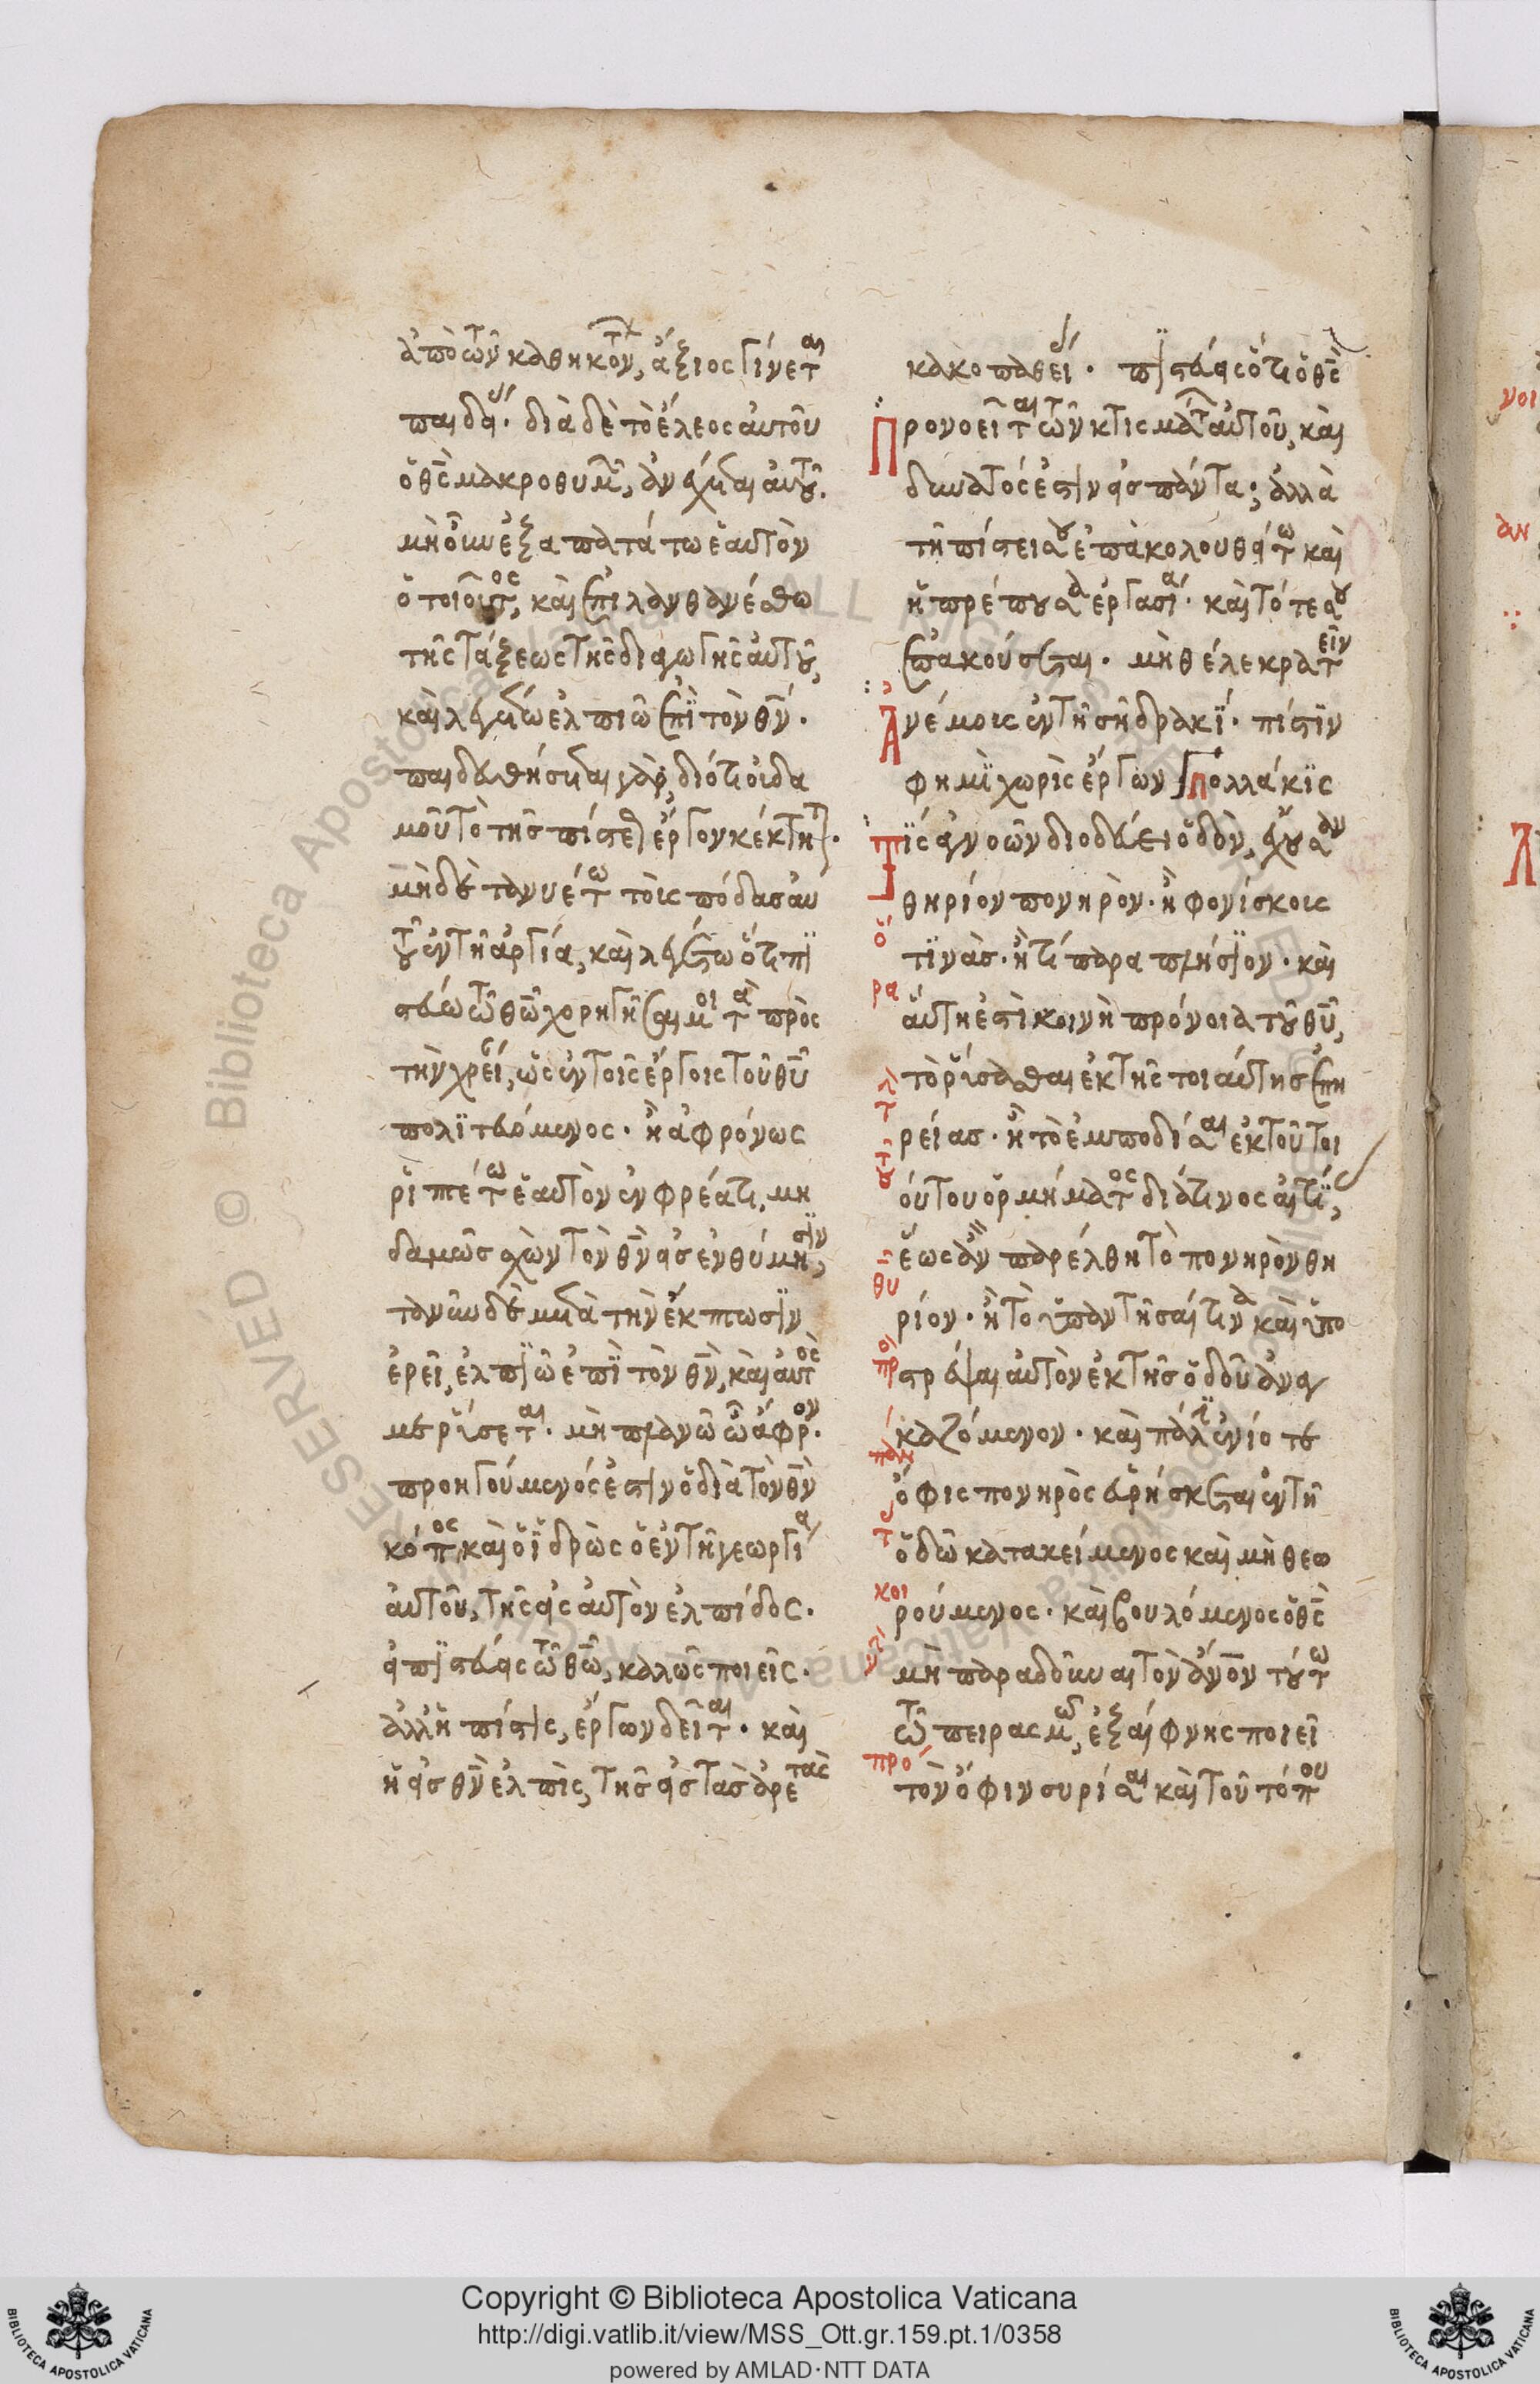 ἀπὸ τῶν καθηκόντων, ἄξιος γίνεται
παιδείας. διὰ δὲ τὸ ἔλεος αὐτοῦ
ὁ θς μακροθυμεῖ, ἀνέχεται αὐτοῦ.
μὴ οὖν ἐξαπατάτω ἑαυτὸν
ὁ τοιοῦτος, καὶ ἐπιλανθανέσθω
τῆς τάξεως τῆς διαγωγῆς αὐτοῦ,
καὶ λεγέτω ἐλπιῶ ἐπὶ τὸν θν.
παιδευθήσεται γὰρ, διότι οἶδα
μοῦ τὸ τῆς πίστεως ἔργον κέκτηται.
μηδὲ τανυέτω τοῖς πόδας αὐ
τοῦ ἐν τῆ ἀργία, καὶ λεγέτω ὅτι πι
στεύω τῶ θῶ χορηγῆσαι μοι τὰ πρὸς
τὴν χρείαν, ὡς ἐν τοῖς ἔργοις τοῦ θυ
πολιτευόμενος. ἢ ἀφρόνως
ῥιπέτω ἑαυτὸν ἐν φρέατι, μη
δαμῶς ἔχων τὸν θν εἰς ἐνθύμησιν,
τανῦν δὲ μετὰ τὴν ἔκπτωσιν
ἐρεῖ, ἐλπιῶ ἐπὶ τὸν θν, καὶ αὐτὸς
με ῥύσεται. μὴ πλανῶ ὦ ἄφρον.
προηγούμενός ἐστιν ὁ διὰ τὸν θν
κόπος, καὶ ὁ ἱδρὼς ὁ ἐν τῆ γεωργία
αὐτοῦ, τῆς εἰς αὐτὸν ἐλπίδος.
εἰ πιστεύεις τῶ θῶ, καλῶς ποιεῖς.
ἀλλ' ἡ πίστις, ἔργων δεῖται. καὶ
ἡ εἰς θν ἐλπὶς, τῆς εἰς τὰς ἀρετὰς
κακοπαθείας. πιστεύεις ὅτι ὁ θς
προνοεῖται τῶν κτισμάτων αὐτοῦ, καὶ
δυνατός ἐστιν εἰς πάντα; ἀλλὰ
τῆ πίστει σου ἐπακολουθείτω καὶ
ἡ πρέπουσα ἐργασία. καὶ τότε σου
ἐπακούσεται. μὴ θέλε κρατεῖν
ἀνέμοις ἐν τῆ σῆ δρακί. πίστιν
φημὶ χωρὶς ἔργων πολλάκις
τίς ἀγνοῶν διοδεύει ὁδὸν, ἔχουσαν
θηρίον πονηρὸν. ἢ φονίσκοις
τινὰς. ἤ τι παραπλησίον. καὶ
αὕτη ἐστὶ κοινὴ πρόνοια τοῦ θυ,
τὸ ῥύσασθαι ἐκ τῆς τοιαύτης ἐπη
ρείας. ἢ τὸ ἐμποδίσαι ἐκ τοῦ τοι
ούτου ὁρμήματος διά τινος αἰτίας,
ἕως ἂν παρέλθη τὸ πονηρὸν θη
ρίον. ἢ τὸ ὑπαντῆσαί τινα καὶ ὑπο
στρέψαι αὐτὸν ἐκ τῆς ὁδοῦ ἀναγ
καζόμενον. καὶ πάλιν ἐνίοτε
ὄφις πονηρὸς εὑρήσκεται ἐν τῆ
ὁδῶ κατακείμενος καὶ μὴ θεω
ρούμενος. καὶ βουλόμενος ὁ θς
μὴ παραδοῦναι τὸν ἀνον τούτω
τῶ πειρασμῶ, ἐξαίφνης ποιεῖ
τὸν ὄφιν συρίσαι καὶ τοῦ τόπου
Copyright © Biblioteca Apostolica Vaticana
http://digi.vatlib.it/view/MSS_Ott.gr.159.pt.1/0358
powered by AMLAD·NTT DATA